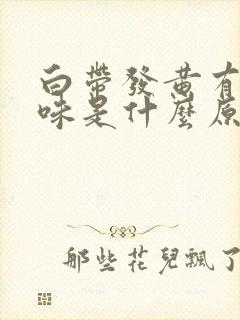 白帶發黃有
味是什麼原
那些花兒飄了